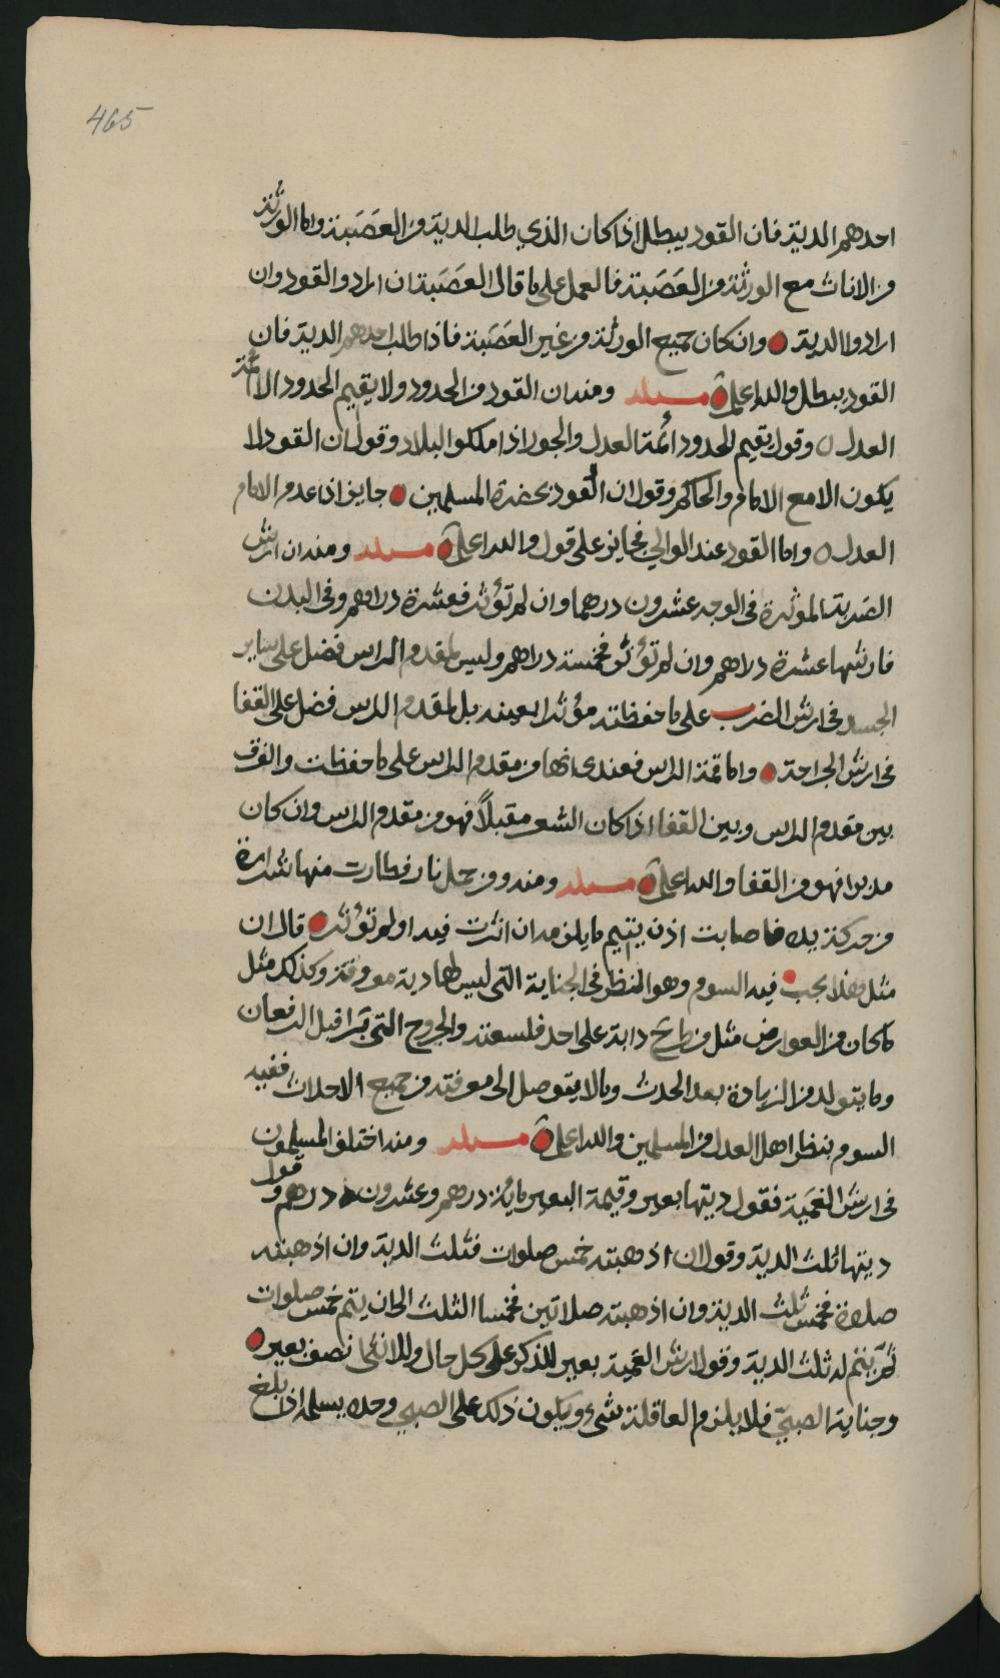 465
احدهم الدية فان القود يبطل اذا كان الذي طلب الدية من العصبة واما الورثة
من الاناث مع الورثة من العصبة فالعمل على ما قال العصبة ان ارادوا القود وان
ارادوا الدية وان كان جميع الورثة من غير العصبة فاذا طلب احدهم الدية فان
القود يبطل والله اعلم مسئلة ومنه ان القود من الحدود ولا يقيم الحدود الا ائمة
العدل وقول يقيم الحدود ائمة العدل والجور اذا ملكوا البلاد وقول ان القود لا
يكون الا مع الامام والحاكم وقول ان القود بحضرة المسلمين جايز اذا عدم الامام
العدل واما القود عند الوالي فجايز على قول والله اعلم مسئلة ومنه ان ارش
الضربة المؤثرة في الوجه عشرون درهما وان لم تؤثر فعشرة دراهم وفي البدن
فارشها عشرة دراهم وان لم تؤثر فخمسة دراهم وليس لمقدم الراس فضل على ساير
الجسد في ارش الضرب على ما حفظته مؤثرا بعينه بل لمقدم الراس فضل على القفا
في ارش الجراحة واما قمة الراس فعندي انها من مقدم الراس على ما حفظت والفرق
بين مقدم الراس وبين القفا اذا كان الشعر مقبلاً فهو من مقدم الراس وان كان
مدبرا فهو من القفا والله اعلم مسئلة ومنه ومن حمل نار فطارت منها شرارة
من حركة يده فاصابت اذن يتيم ما يلزمه ان اثرت فيه او لم تؤثر قال ان
مثل هذا يجب فيه السوم وهو النظر في الجناية التي ليس لها دية موقته وكذلك مثل
ما كان من العوارض مثل من طرح دابة على احد فلسعته والجروح التي تبرا قبل الرفعان
وما يتولد من الزيادة بعد الحدث وما لا يتوصل الى معرفته من جميع الاحداث ففيه
السوم بنظر اهل العدل من المسلمين والله اعلم مسئلة ومنه اختلف المسلمون
في ارش الغمية فقول ديتها بعير وقيمة البعير ماية درهم وعشرون درهم وقول
ديتها ثلث الدية وقول ان اذهبته خمس صلوات فثلث الدية وان اذهبته
صلاة فخمس ثلث الدية وان اذهبته صلاتين فخمسا الثلث الى ان يتم خمس صلوات
ثم يتم له ثلث الدية وقول ارش الغمية بعير للذكر على كل حال وللانثى نصف بعير
وجناية الصبي فلا يلزم العاقلة شيء ويكون ذلك على الصبي وحده يسلمه اذا بلغ